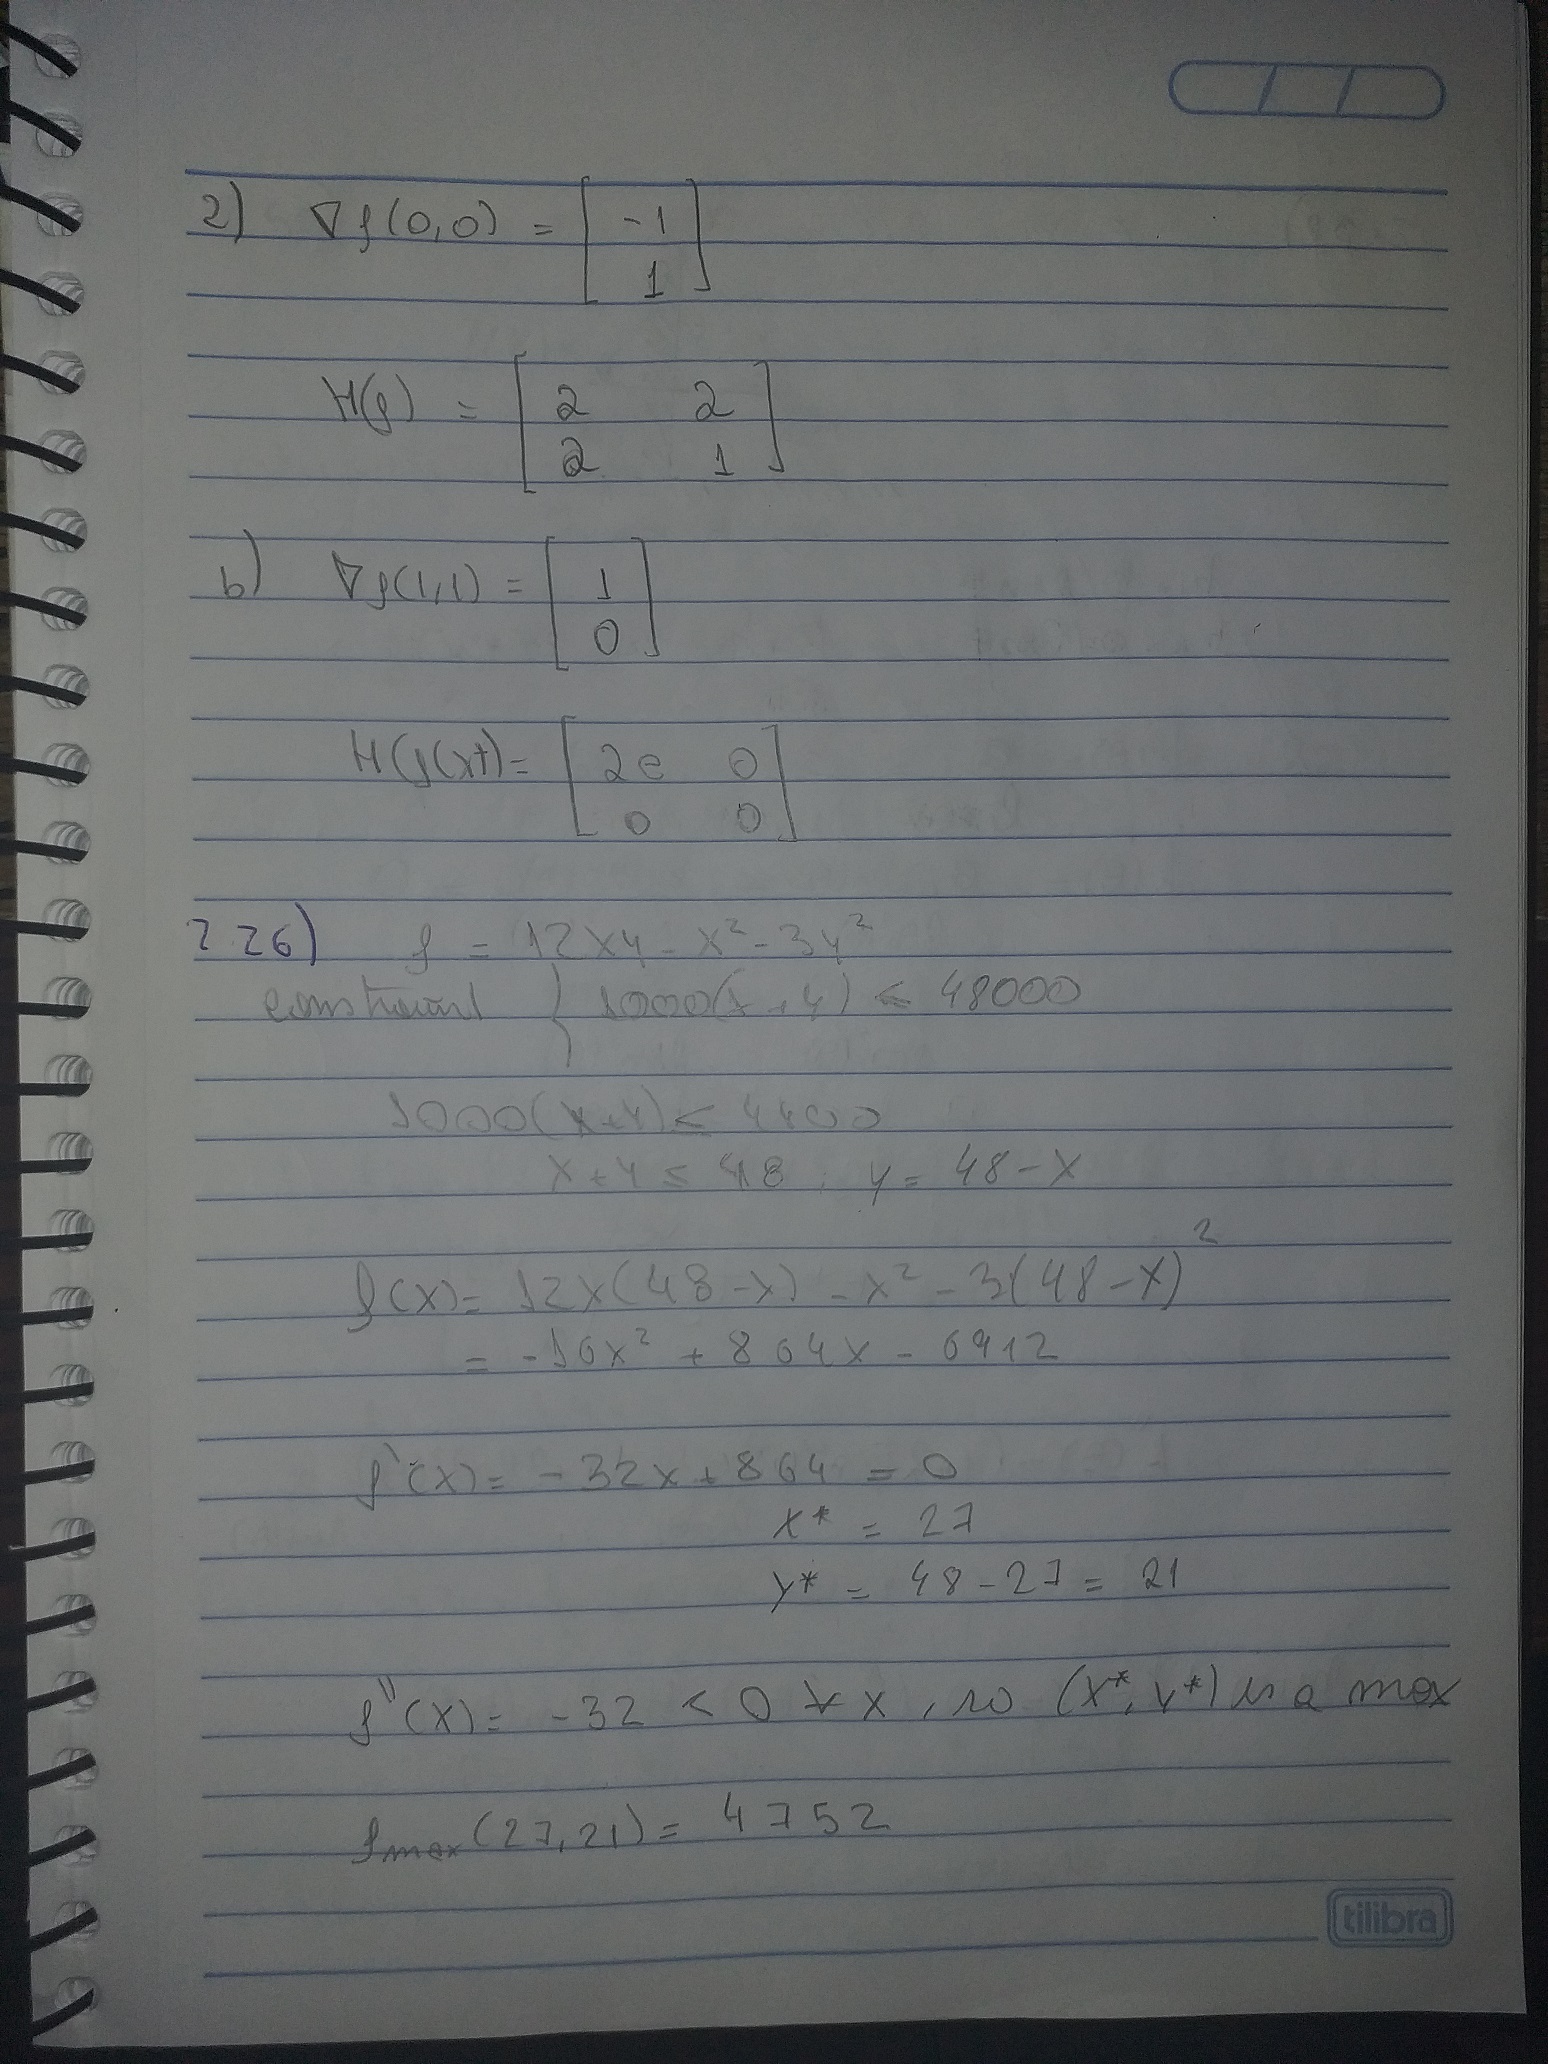 2) ∇f(0,0) = [ -1
1 ]
H(f) = [ 2 2
2 1 ]
b) ∇f(1,1) = [ 1
0 ]
H(f(x*)= [ 2e 0
0 0 ]
2 26) f = 12xy - x² - 3y²
constraint { 1000(x + y) ≤ 48000
1000(x+y) ≤
x + y ≤ 48 ; y = 48 - x
f(x) = 12x(48 - x) - x² - 3(48 - x)²
= -16x² + 864x - 6912
f'(x) = -32x + 864 = 0
x* = 27
y* = 48 - 27 = 21
f''(x) = -32 < 0 ∀ x, so (x*, y*) is a max
fmax (27, 21) = 4752
tilibra